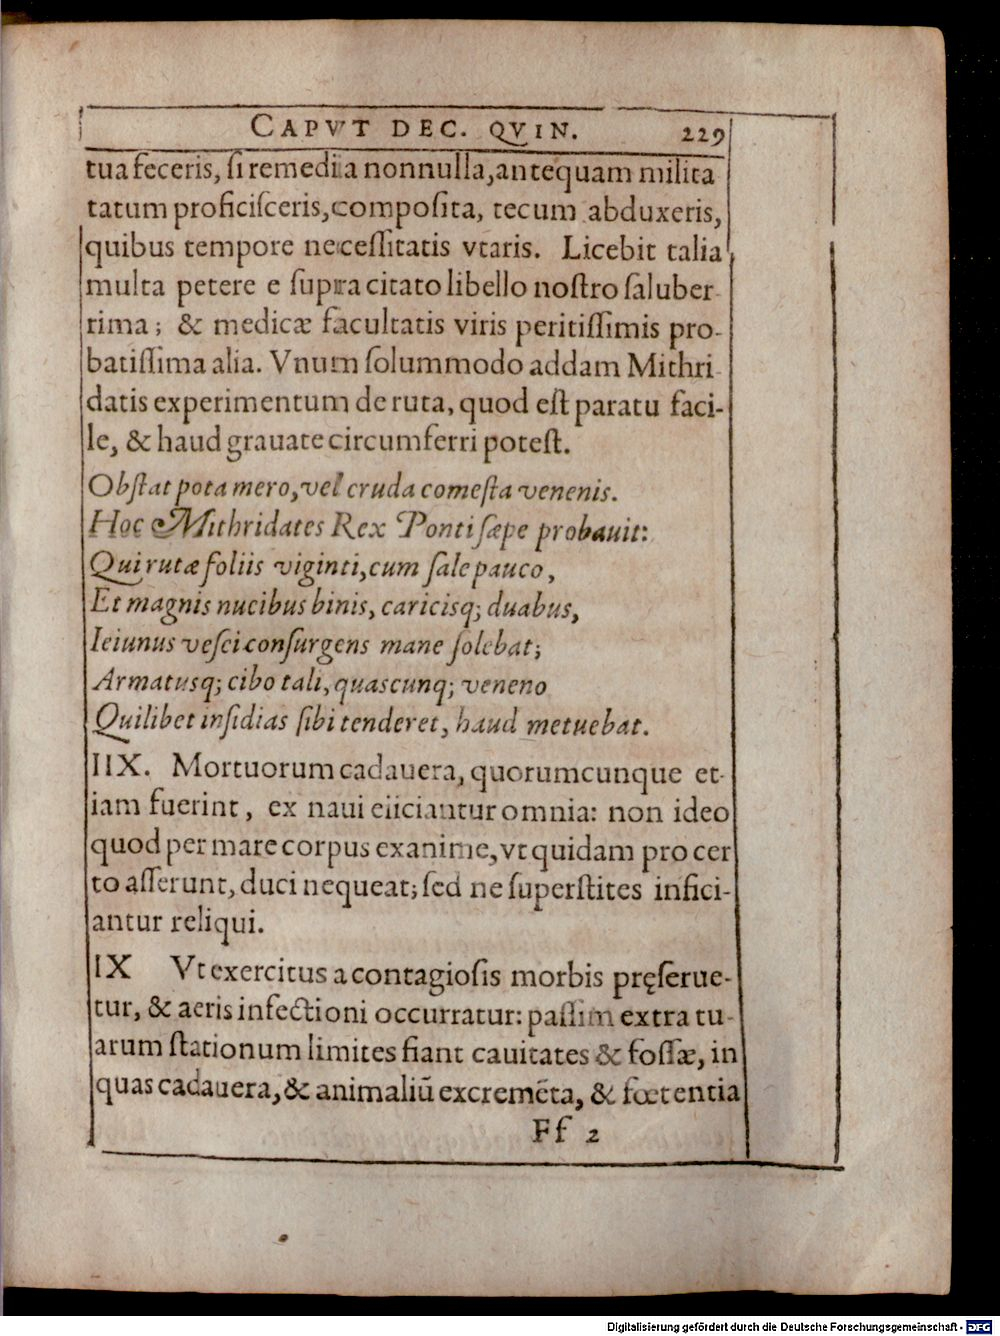 CAPVT DEC. QVIN. 229
tua feceris, ſi remedia nonnulla, antequam milita
tatum proficiſceris, compoſita, tecum abduxeris,
quibus tempore neceſſitatis vtaris. Licebit talia
multa petere e ſupra citato libello noſtro ſaluber
rima; & medicæ facultatis viris peritiſſimis pro-
batiſſima alia. Vnum ſolummodo addam Mithri-
datis experimentum de ruta, quod eſt paratu faci-
le, & haud grauate circumferri poteſt.
Obſtat pota mero, vel cruda comeſta venenis.
Hoc Mithridates Rex Ponti ſæpe probauit:
Qui rutæ foliis viginti, cum ſale pauco,
Et magnis nucibus binis, caricisq; duabus,
Ieiunus veſci conſurgens mane ſolebat;
Armatusq; cibo tali, quascunq; veneno
Quilibet inſidias ſibi tenderet, haud metuebat.
IIX. Mortuorum cadauera, quorumcunque et-
iam fuerint, ex naui eiiciantur omnia: non ideo
quod per mare corpus exanime, vt quidam pro cer
to aſſerunt, duci nequeat; ſed ne ſuperſtites infici-
antur reliqui.
IX Vt exercitus a contagioſis morbis pręſerue-
tur, & aeris infectioni occurratur: paſſim extra tu-
arum ſtationum limites fiant cauitates & foſſæ, in
quas cadauera, & animaliū excremēta, & fœtentia
Ff 2
Digitalisierung gefördert durch die Deutsche Forschungsgemeinschaft - DFG